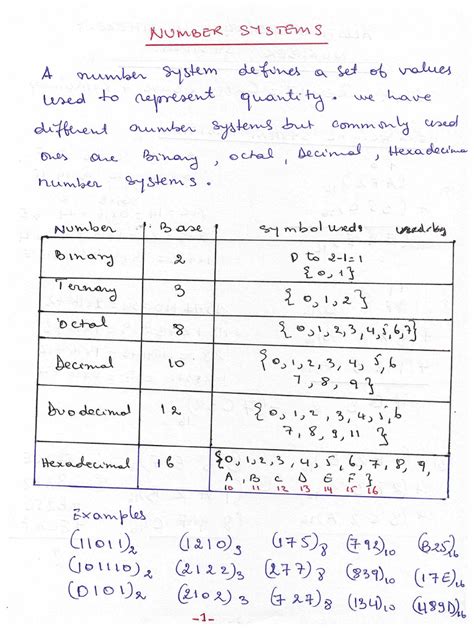 NUMBER SYSTEMS
A number system defines a set of values
used to represent quantity. we have
different number systems but commonly used
ones are Binary, octal, Decimal, Hexadecima
number systems.
Number Base Symbol used used by
Binary 2 0 to 2-1=1
{0,1}
Ternary 3 {0,1,2}
Octal 8 {0,1,2,3,4,5,6,7}
Decimal 10 {0,1,2,3,4,5,6
7,8,9}
Duodecimal 12 {0,1,2,3,4,5,6
7,8,9,11}
Hexadecimal 16 {0,1,2,3,4,5,6,7,8,9,
A,B C D E F}
10 11 12 13 14 15 16
Examples
(11011)2 (1210)3 (175)8 (792)10 (B25)16
(101110)2 (2122)3 (277)8 (839)10 (17E)16
(0101)2 (2102)3 (727)8 (134)10 (489D)16
-1-